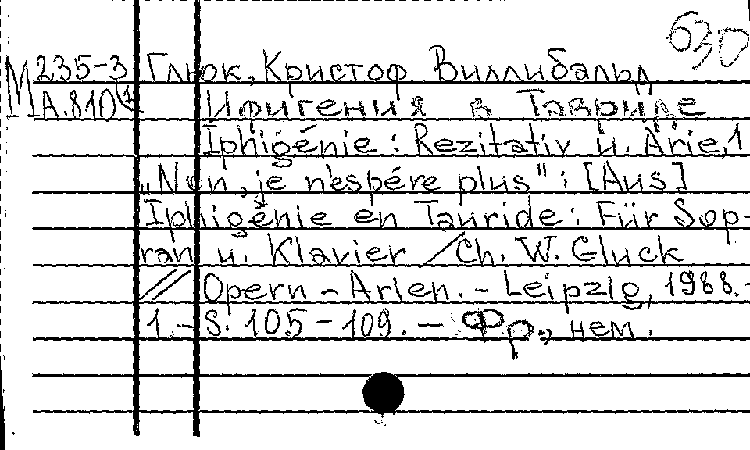 630
М 235-3 Глюк, Кристоф Виллибальд
А.810 Ифигения в Тавриде
Iphigénie : Rezitativ u. Arie, 1
"Non, je n'espére plus" : [Aus]
Iphigénie en Tauride : Für Sop-
ran u. Klavier / Ch. W. Gluck
// Opern - Arien. - Leipzig, 1988. -
1. - S. 105 - 109. - Фр., нем.